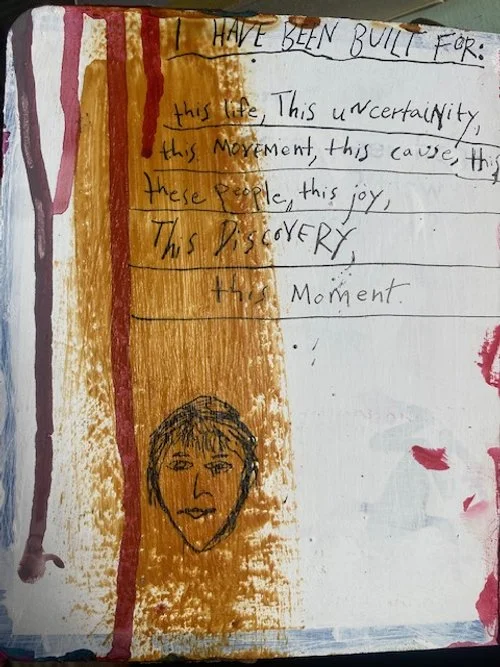 I HAVE BEEN BUILT FOR:
this life, This uNcertaiNity,
this MOVEMENT, this cause, this
these people, this joy,
This DiscOVERY,
this MomeNt.